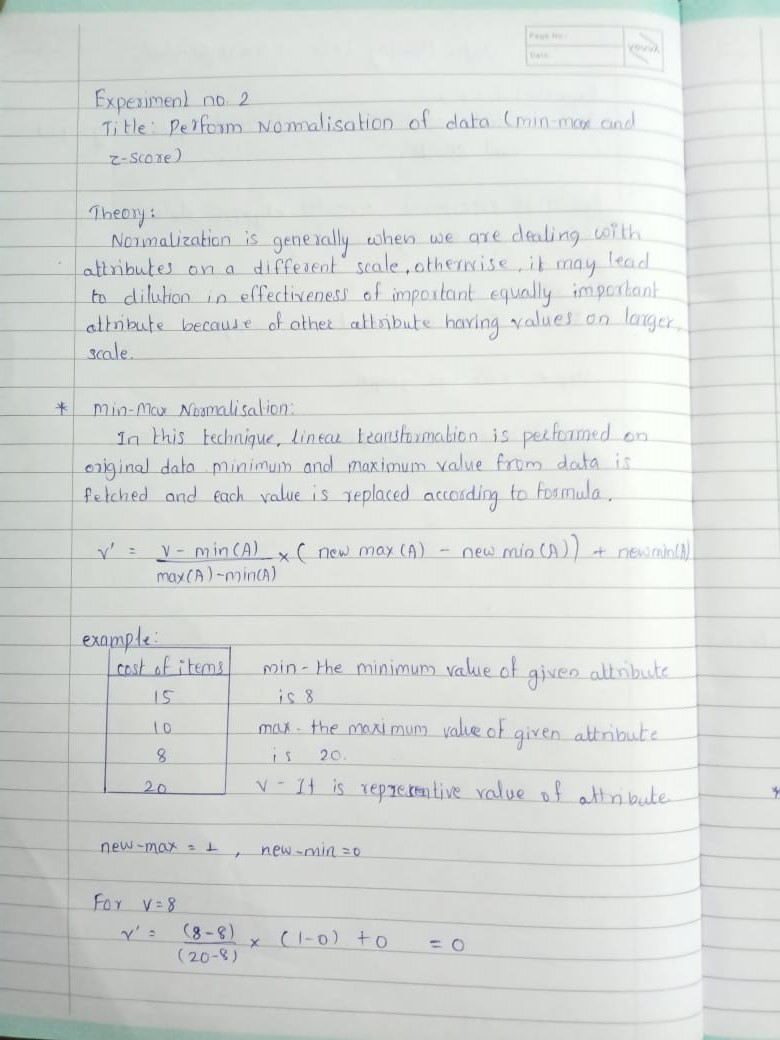 Page No:
Date:
YOUVA
Experiment no. 2
Title: Perform Normalisation of data (min-max and
z-score)
Theory:
Normalization is generally when we are dealing with
attributes on a different scale, otherwise, it may lead
to dilution in effectiveness of important equally important
attribute because of other attribute having values on larger
scale.
* min-max Normalisation:
In this technique, linear transformation is performed on
original data minimum and maximum value from data is
fetched and each value is replaced according to formula.
v' = v - min(A) × ( new max (A) - new min (A)) + new min(A)
max(A)-min(A)
example:
cost of items min - the minimum value of given attribute
15 is 8
10 max - the maximum value of given attribute
8 is 20.
20 v - It is represntive value of attribute
new-max = 1 , new-min = 0
For v=8
v' = (8-8) × (1-0) + 0 = 0
(20-8)
*